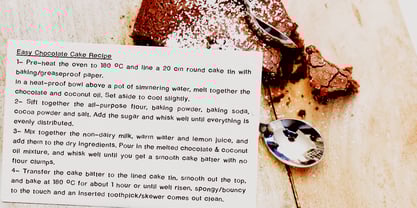 Easy Chocolate Cake Recipe
1- Pre-heat the oven to 180 ºC and line a 20 cm round cake tin with
baking/greaseproof paper.
In a heat-proof bowl above a pot of simmering water, melt together the
chocolate and coconut oil. Set aside to cool slightly.
2- Sift together the all-purpose flour, baking powder, baking soda,
cocoa powder and salt. Add the sugar and whisk well until everything is
evenly distributed.
3- Mix together the non-dairy milk, warm water and lemon juice, and
add them to the dry ingredients. Pour in the melted chocolate & coconut
oil mixture, and whisk well until you get a smooth cake batter with no
flour clumps.
4- Transfer the cake batter to the lined cake tin, smooth out the top,
and bake at 180 ºC for about 1 hour or until well risen, spongy/bouncy
to the touch and an inserted toothpick/skewer comes out clean.